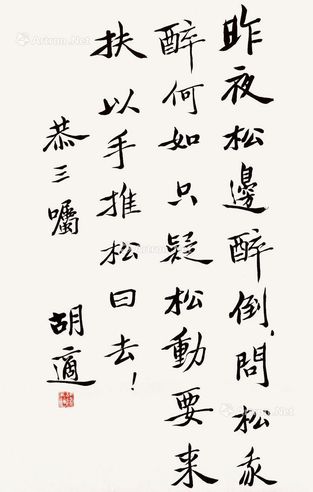 昨夜松邊醉倒，問松我
醉何如只疑松動要来
扶以手推松曰去！
恭三囑
胡適